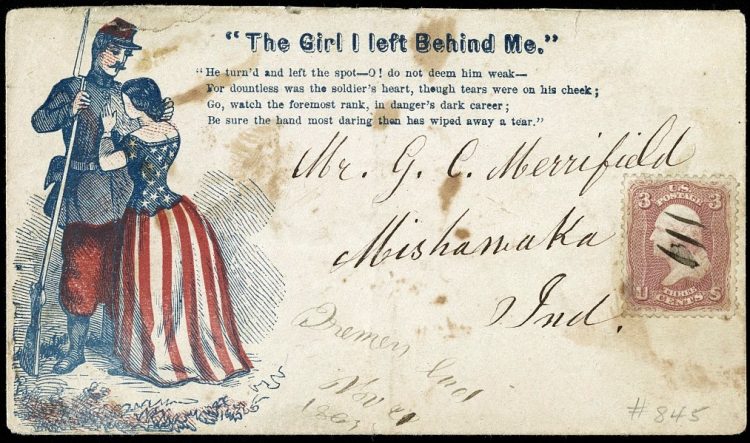 "The Girl I left Behind Me."
"He turn'd and left the spot—O! do not deem him weak—
For dountless was the soldier's heart, though tears were on his cheek;
Go, watch the foremost rank, in danger's dark career;
Be sure the hand most daring then has wiped away a tear."
Mr. G. C. Merrifield
Mishawaka
Ind.
3 U.S. 3
POSTAGE
U THREE S
CENTS
Bremen Ind
Nov
1863
#845